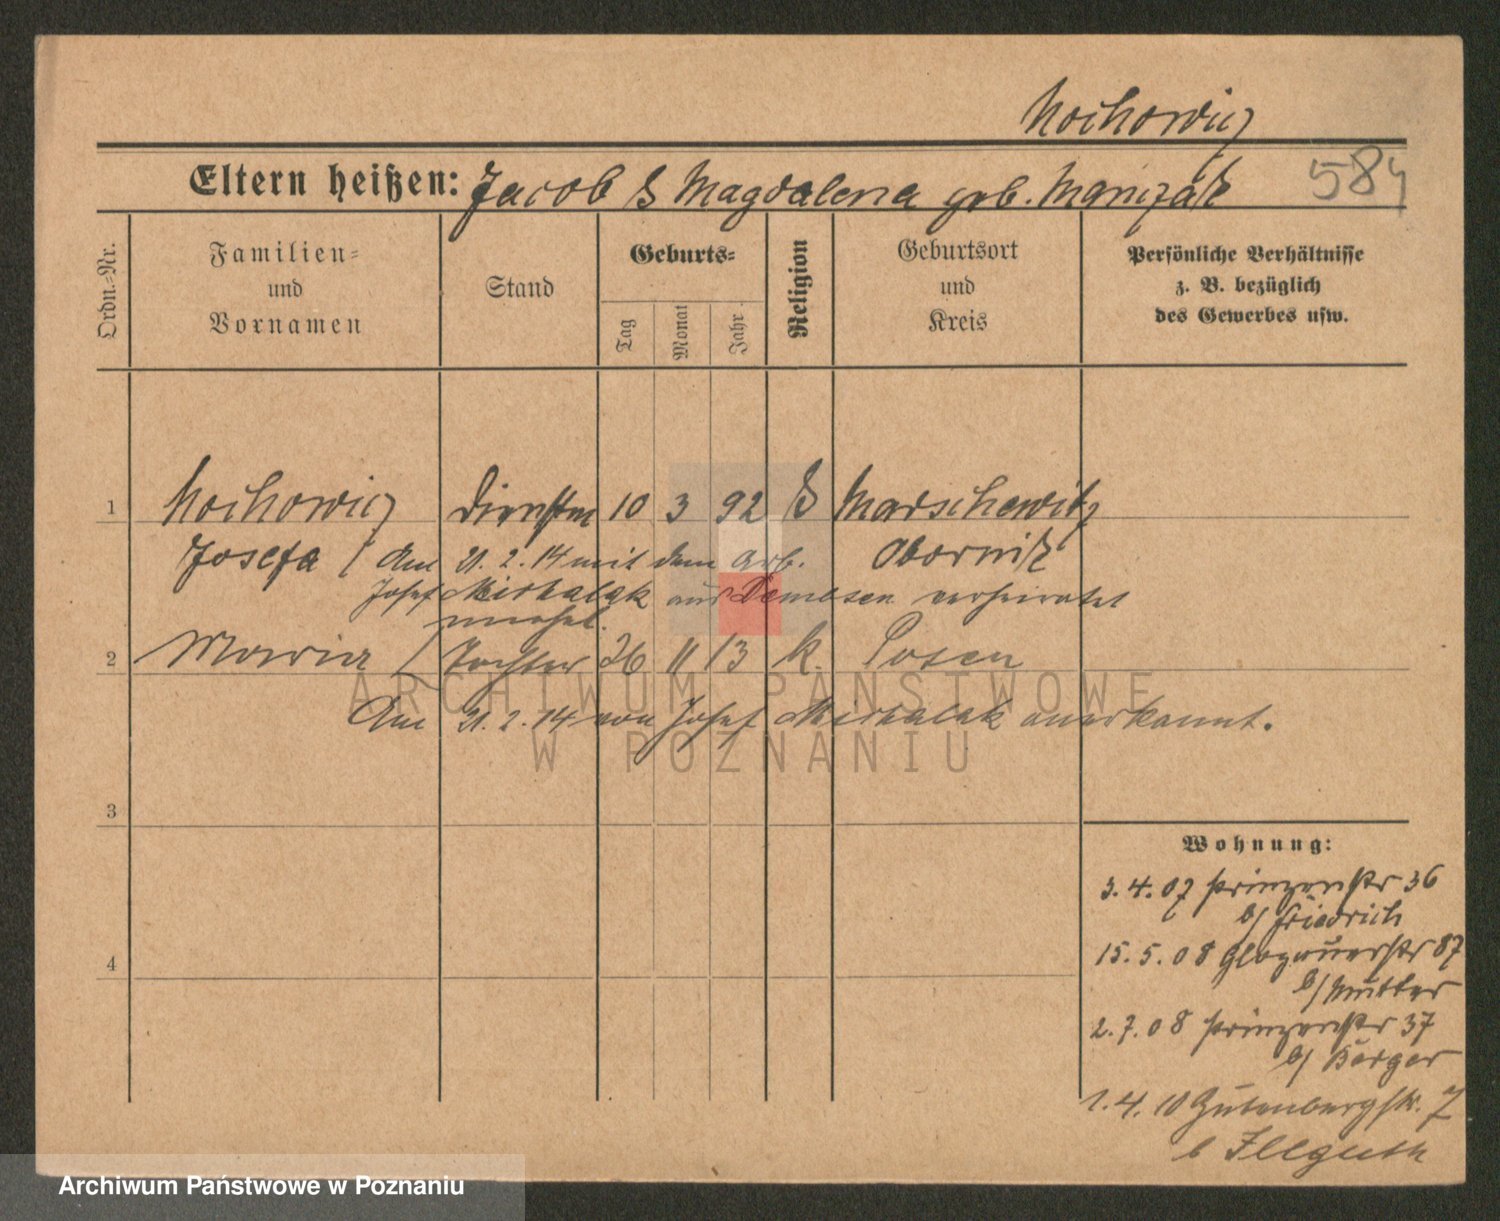 Nochowicz
Eltern heißen: Jacob & Magdalena geb. Manczak
584
Ordn.-Nr.
Familien-
und
Vornamen
Stand
Geburts-
Tag
Monat
Jahr
Religion
Geburtsort
und
Kreis
Persönliche Verhältnisse
z. B. bezüglich
des Gewerbes usw.
1 Nochowicz Dienstm 10 3 92 Marschewitz
Josefa / Am 21.2.14 mit dem Arb. Obornik
Josef Michalak aus Demsen verheiratet
unehel.
2 Maria / Tochter 26 11 13 k. Posen
Am 21.2.14 von Josef Michalak anerkannt.
3
4
Wohnung:
3.4.07 Prinzenstr 36
b/ Friedrich
15.5.08 Glogauerstr 87
b/ Mutter
2.7.08 Prinzenstr 37
b/ Berger
1.4.10 Gutenbergstr. 7
b Illguth
ARCHIWUM PAŃSTWOWE
W POZNANIU
Archiwum Państwowe w Poznaniu